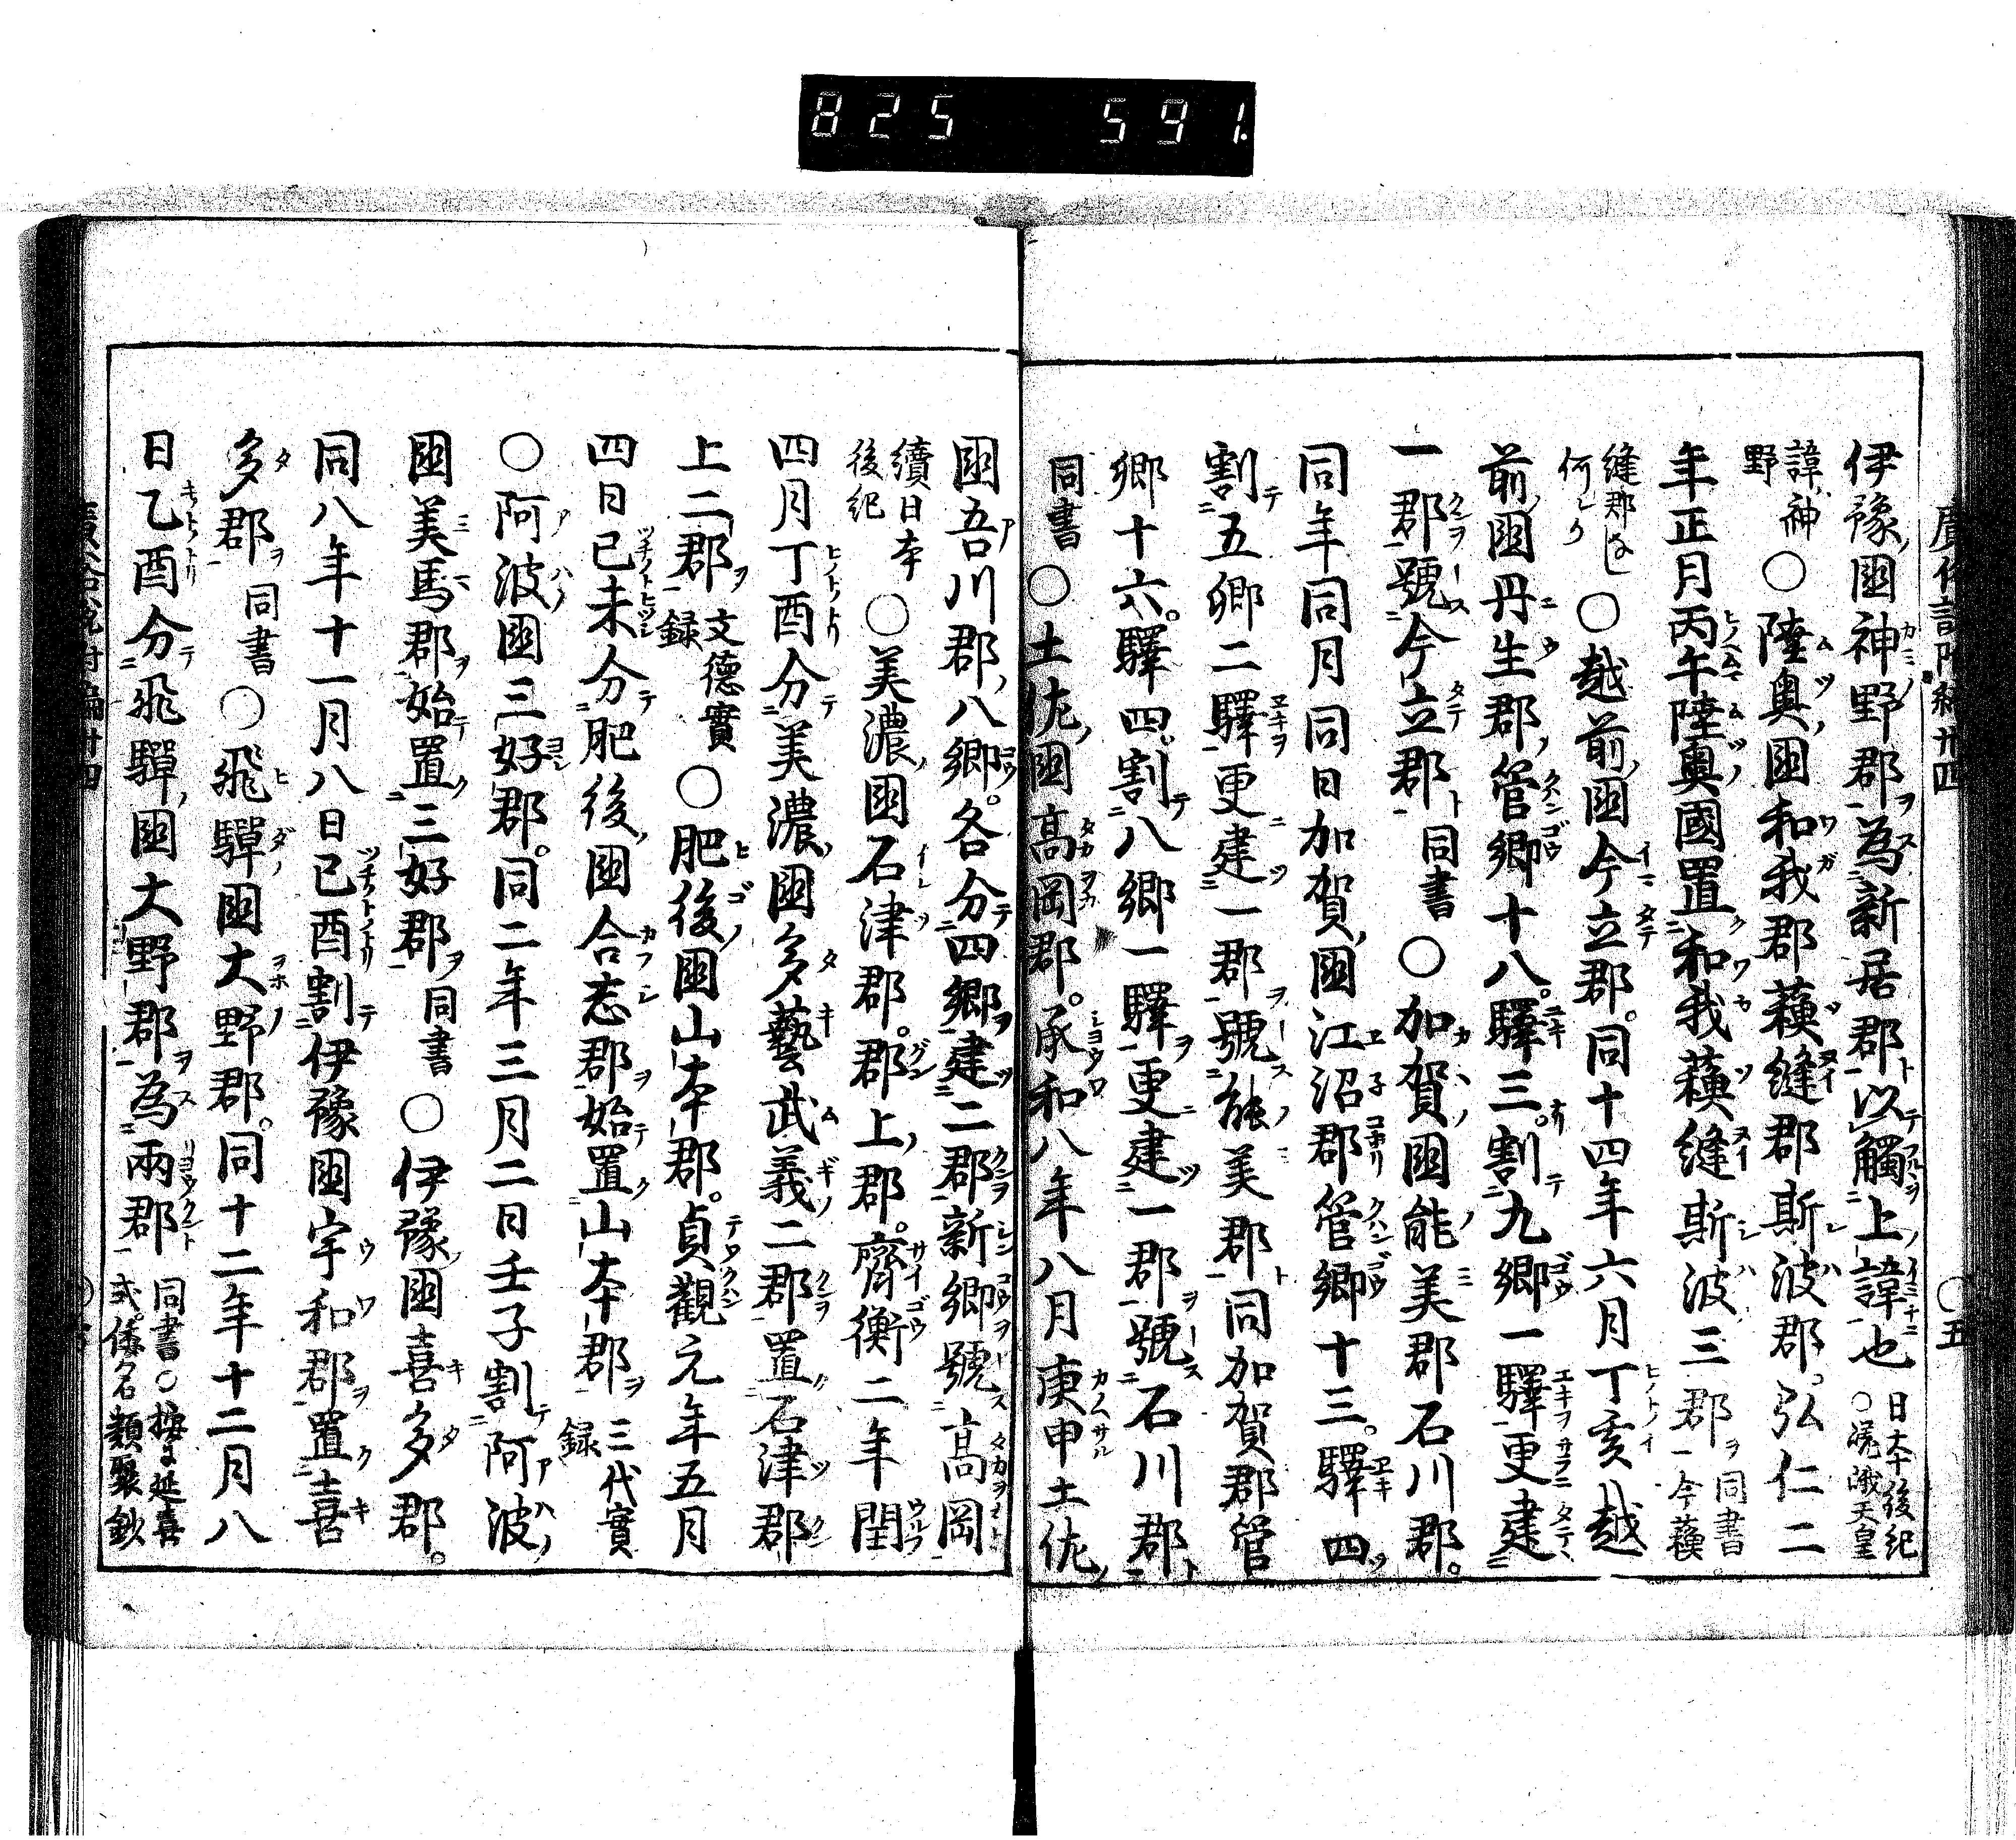 825 591.
伊豫國神野郡為新居郡以觸上諱也 日本後紀○嵯峨天皇
諱神野 ○陸奥國和我郡薭縫郡斯波郡弘仁二
年正月丙午陸奥國置和我薭縫斯波三郡 同書今薭
縫郡なし何しく ○越前國今立郡。同十四年六月丁亥越
前國丹生郡管郷十八。驛三。割九郷一驛更建
一郡號今立郡 同書 ○加賀國能美郡石川郡。
同年同月同日加賀國江沼郡管郷十三。驛四
割五郷二驛更建一郡號能美郡同加賀郡管
郷十六。驛四割八郷一驛更建一郡號石川郡
同書 ○土佐國髙岡郡。承和八年八月庚申土佐
國吾川郡八郷。各分四郷建二郡新郷號髙岡
續日本後紀 ○美濃國石津郡。郡上郡。齊衡二年閏
四月丁酉分美濃國多藝武義二郡置石津郡
上二郡 文德實録 ○肥後國山本郡。貞觀元年五月
四日己未分肥後國合志郡始置山本郡 三代實録
○阿波國三好郡。同二年三月二日壬子割阿波
國美馬郡始置三好郡 同書 ○伊豫國喜多郡。
同八年十一月八日己酉割伊豫國宇和郡置喜
多郡 同書 ○飛驒國大野郡。同十二年十二月八
日乙酉分飛驒國大野郡為兩郡 同書○按よ延喜式。倭名類聚鈔